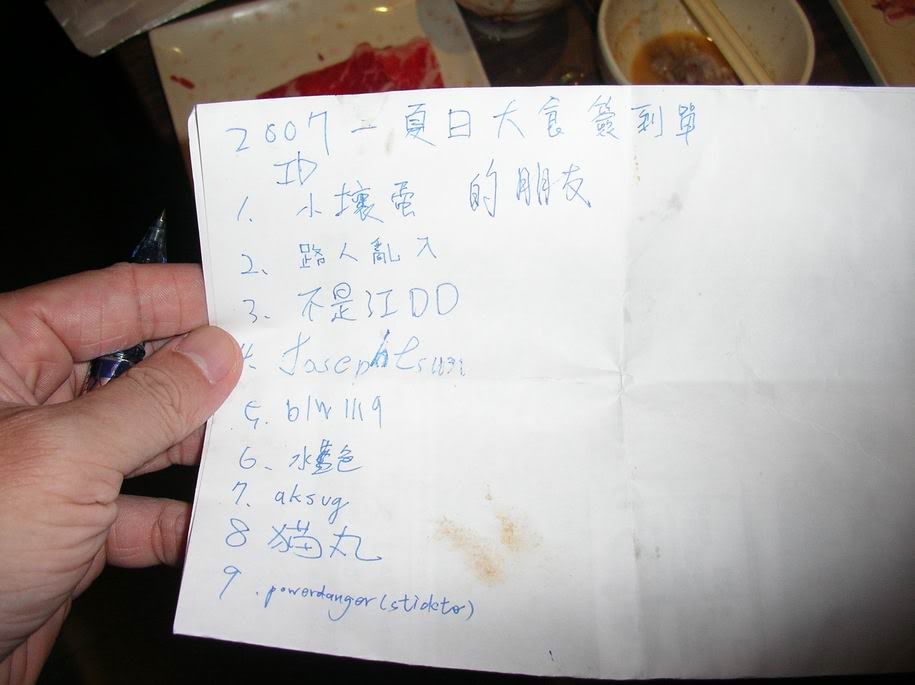 2007 一夏日大食簽到單
ID
1. 小壞蛋 的朋友
2、路人亂入
3、不是江DD
4. Josephtsui
5. blw1119
6、水藍色
7. aksvg
8 貓丸
9 . powerdanger(stickto)